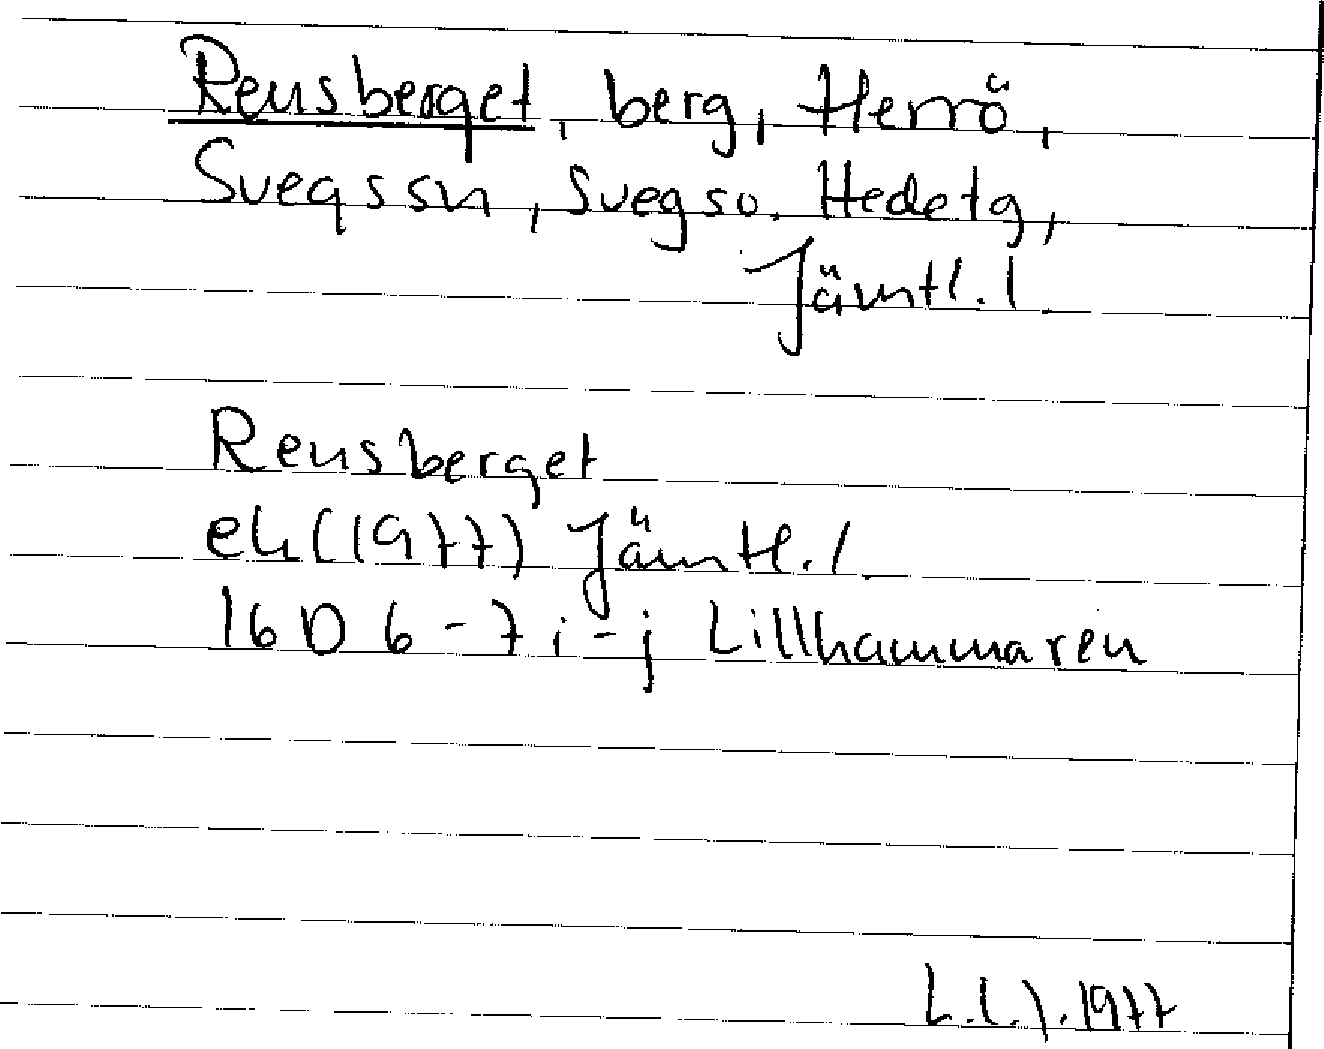 Rensberget, berg, Herrö,
Svegssn, Svegso. Hedetg,
Jämtl. l
Rensberget
ek (1977) Jämtl. l
16 D 6-7 i-j Lillhammaren
1977